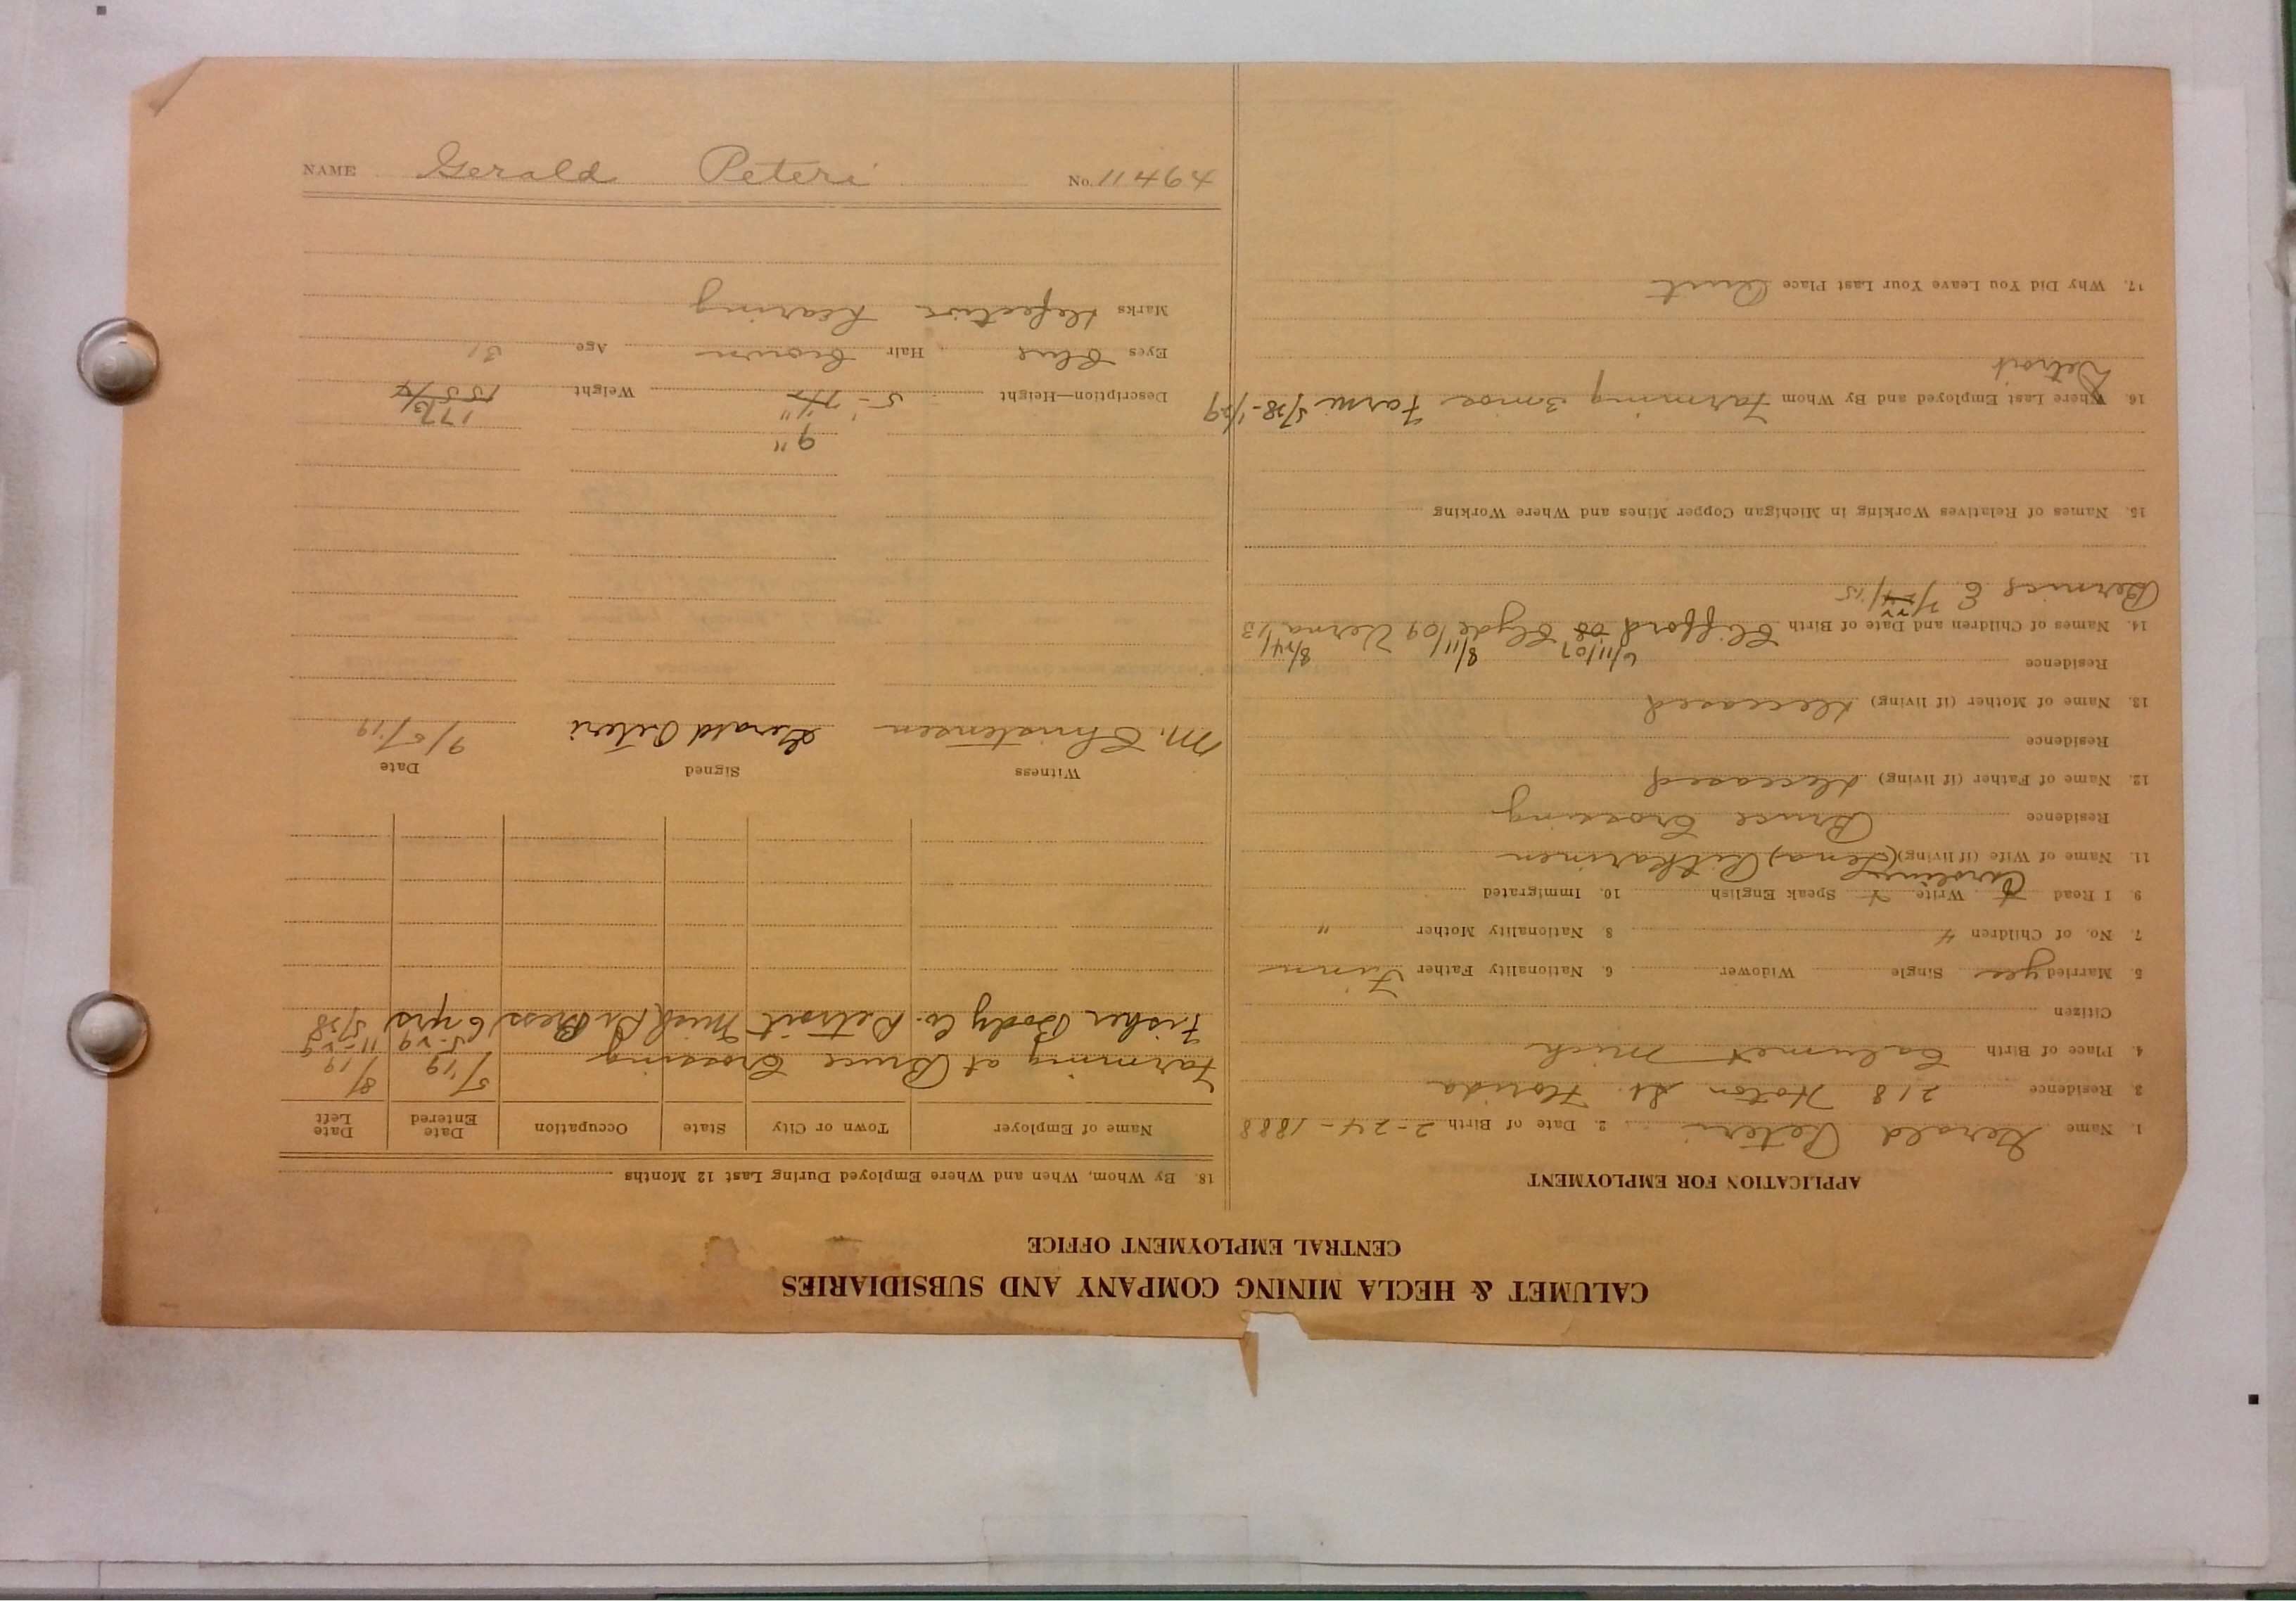 CALUMET & HECLA MINING COMPANY AND SUBSIDIARIES
CENTRAL EMPLOYMENT OFFICE
APPLICATION FOR EMPLOYMENT
1. Name Gerald Peteri 2. Date of Birth 2-24-1888
3 Residence 218 Hoton St. Florida
4 Place of Birth Calumet Mich
Citizen
5. Married yes Single Widower 6. Nationality Father Finn
7. No. of Children 4 8 Nationality Mother "
9 I Read Write Speak English 10. Immigrated
Caroline
11. Name of Wife (if living) (Lena)
Residence Bruce Crossing
12. Name of Father (if living) deceased
Residence
13. Name of Mother (if living) deceased
Residence
6/11/07 8/11/ 8/24/
14. Names of Children and Date of Birth Clifford 08 Clyde /09 Verna /13
Bernice E
15. Names of Relatives Working in Michigan Copper Mines and Where Working
16. Where Last Employed and By Whom Farming Farm 5/28-1/29
Detroit
17. Why Did You Leave Your Last Place Quit
18. By Whom, When and Where Employed During Last 12 Months
Name of Employer Town or City State Occupation Date Entered Date Left
Farming at Bruce Crossing 5/19 8/19
5-29 11-29
Fisher Body Co. Detroit Mich Press 6 yrs 5/28
Witness Signed Date
M. Christensen Gerald Peteri 9/5/19
9" 173
Description—Height 5-7½" Weight 155
Eyes blue Hair brown Age 31
Marks defective hearing
NAME Gerald Peteri No. 11494